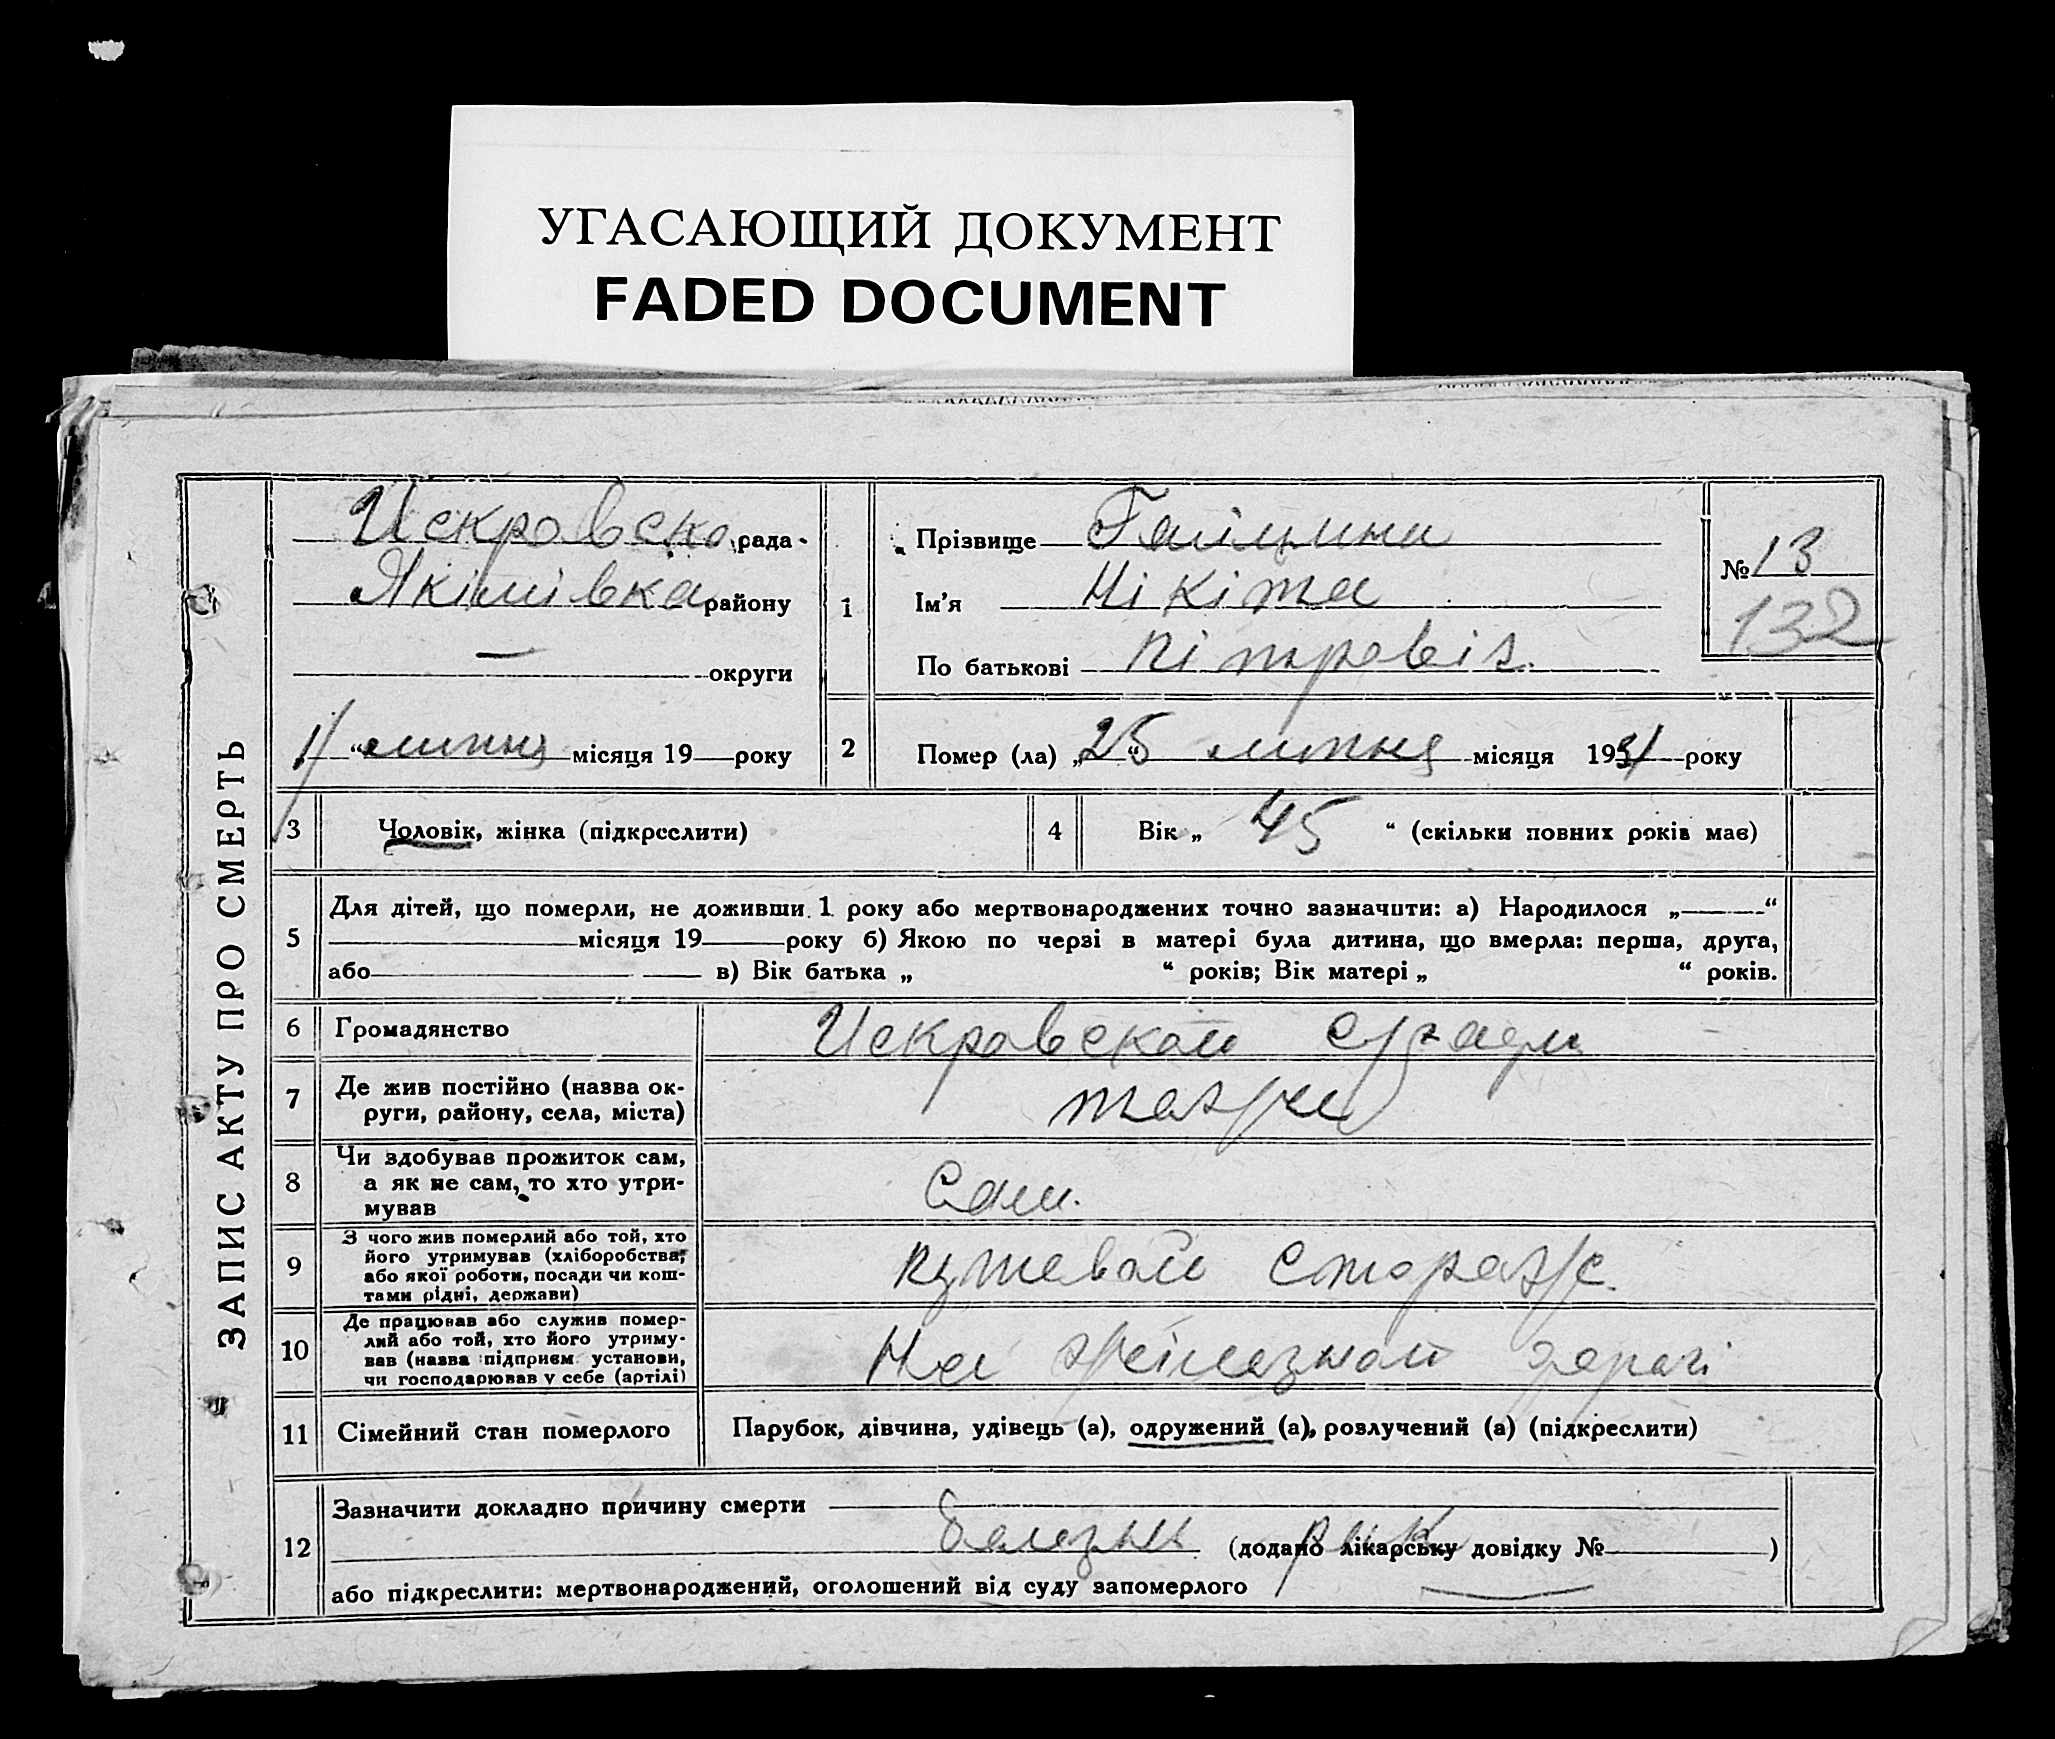 УГАСАЮЩИЙ ДОКУМЕНТ
FADED DOCUMENT
ЗАПИС АКТУ ПРО СМЕРТЬ
Искровско рада
Якімівка району
— округи
„ “ липня місяця 19 року
1
Прізвище
Ім’я Нікіта
По батькові Пітровіч
№ 13
132
2
Помер (ла) „25 липня місяця 1931 року
3
Чоловік, жінка (підкреслити)
4
Вік „ 45 “ (скільки повних років має)
5
Для дітей, що померли, не доживши 1 року або мертвонароджених точно зазначити: а) Народилося „ “
місяця 19 року б) Якою по черзі в матері була дитина, що вмерла: перша, друга,
або в) Вік батька „ “ років; Вік матері „ “ років.
6 Громадянство
Искровской
7 Де жив постійно (назва ок-
руги, району, села, міста)
8 Чи здобував прожиток сам,
а як не сам, то хто утри-
мував
Сам.
9 З чого жив померлий або той, хто
його утримував (хліборобства,
або якої роботи, посади чи кош-
тами рідні, держави)
путевой сторож
10 Де працював або служив помер-
лий або той, хто його утриму-
вав (назва підприєм. установи,
чи господарював у себе (артілі)
На жілезной дорогі
11 Сімейний стан померлого
Парубок, дівчина, удівець (а), одружений (а), розлучений (а) (підкреслити)
12
Зазначити докладно причину смерти
болезнь (додано лікарську довідку № )
або підкреслити: мертвонароджений, оголошений від суду запомерлого